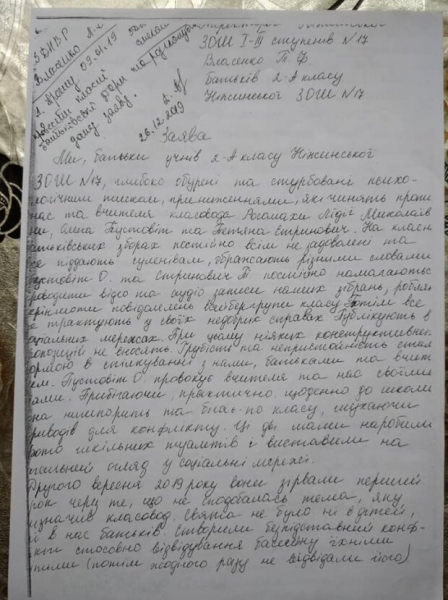 ЗДНВР
Власенко
до 09.01.19
Ніжинської
ЗОШ І-ІІІ ступенів №17
Власенко П. Ф.
батьків 2-А класу
Ніжинської ЗОШ №17
26.12.2019
Заява
Ми, батьки учнів 2-А класу Ніжинської
ЗОШ №17, глибоко обурені та стурбовані психо-
логічним тиском, приниженнями, які чинять проти
нас та вчителя класовода Лідії Миколаїв
ни, Олена Пустовіт та Тетяна Стринович. На класн
батьківських зборах постійно всім не задоволені та
все піддають сумнівам, ображають різними словами
Пустовіт О. та Стринович Т. постійно намагаються
проводити відео та аудіо записи наших зібрань, роблять
скріншоти повідомлень вайбергрупи класу. Потім все
трактують у своїх недобрих справах. Публікують в
соціальних мережах. При цьому ніяких конструктивних
пропозицій не вносять. Грубість та непристойність стала
нормою в спілкуванні з нами, батьками та вчит
ем. Пустовіт О. провокує вчителя та нас своїми
ами. Прибігаючи, практично, щоденно до школи
она нишпорить та бігає по класу, шукаючи
приводів для конфлікту. Ці дві мами наробили
фото шкільних туалетів і виставили на
загальний огляд у соціальні мережі.
Другого вересня 2019 року вони зірвали перший
урок через те, що не сподобалась тема, яку
визначив класовод. Свята не було ні в дітей,
ні в нас батьків. Створили безпідставний конф-
лікт стосовно відвідування басейну їхніми
дітьми (потім жодного разу не відвідали його)